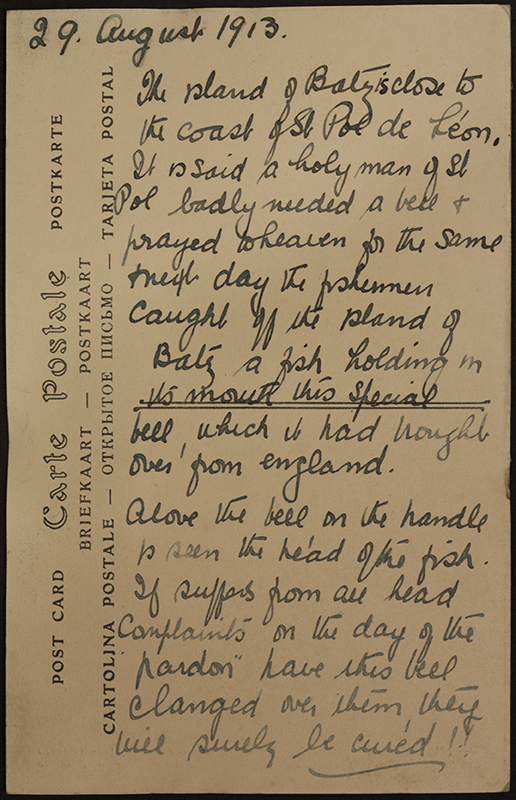 29. August 1913.
The island of Batz is close to
the coast of St Pol de Léon.
It is said a holy man of St
Pol badly needed a bell &
prayed to heaven for the same
& next day the fishermen
caught off the island of
Batz a fish holding in
its mouth this special
bell, which it had brought
over from england.
Above the bell on the handle
is seen the head of the fish.
If suffers from all head
Complaints on the day of the
"pardon" have this bell
clanged over them they
will surely be cured!!
POST CARD Carte Postale POSTKARTE
BRIEFKAART — POSTKAART
CARTOLINA POSTALE — ОТКРЫТОЕ ПИСЬМО — TARJETA POSTAL